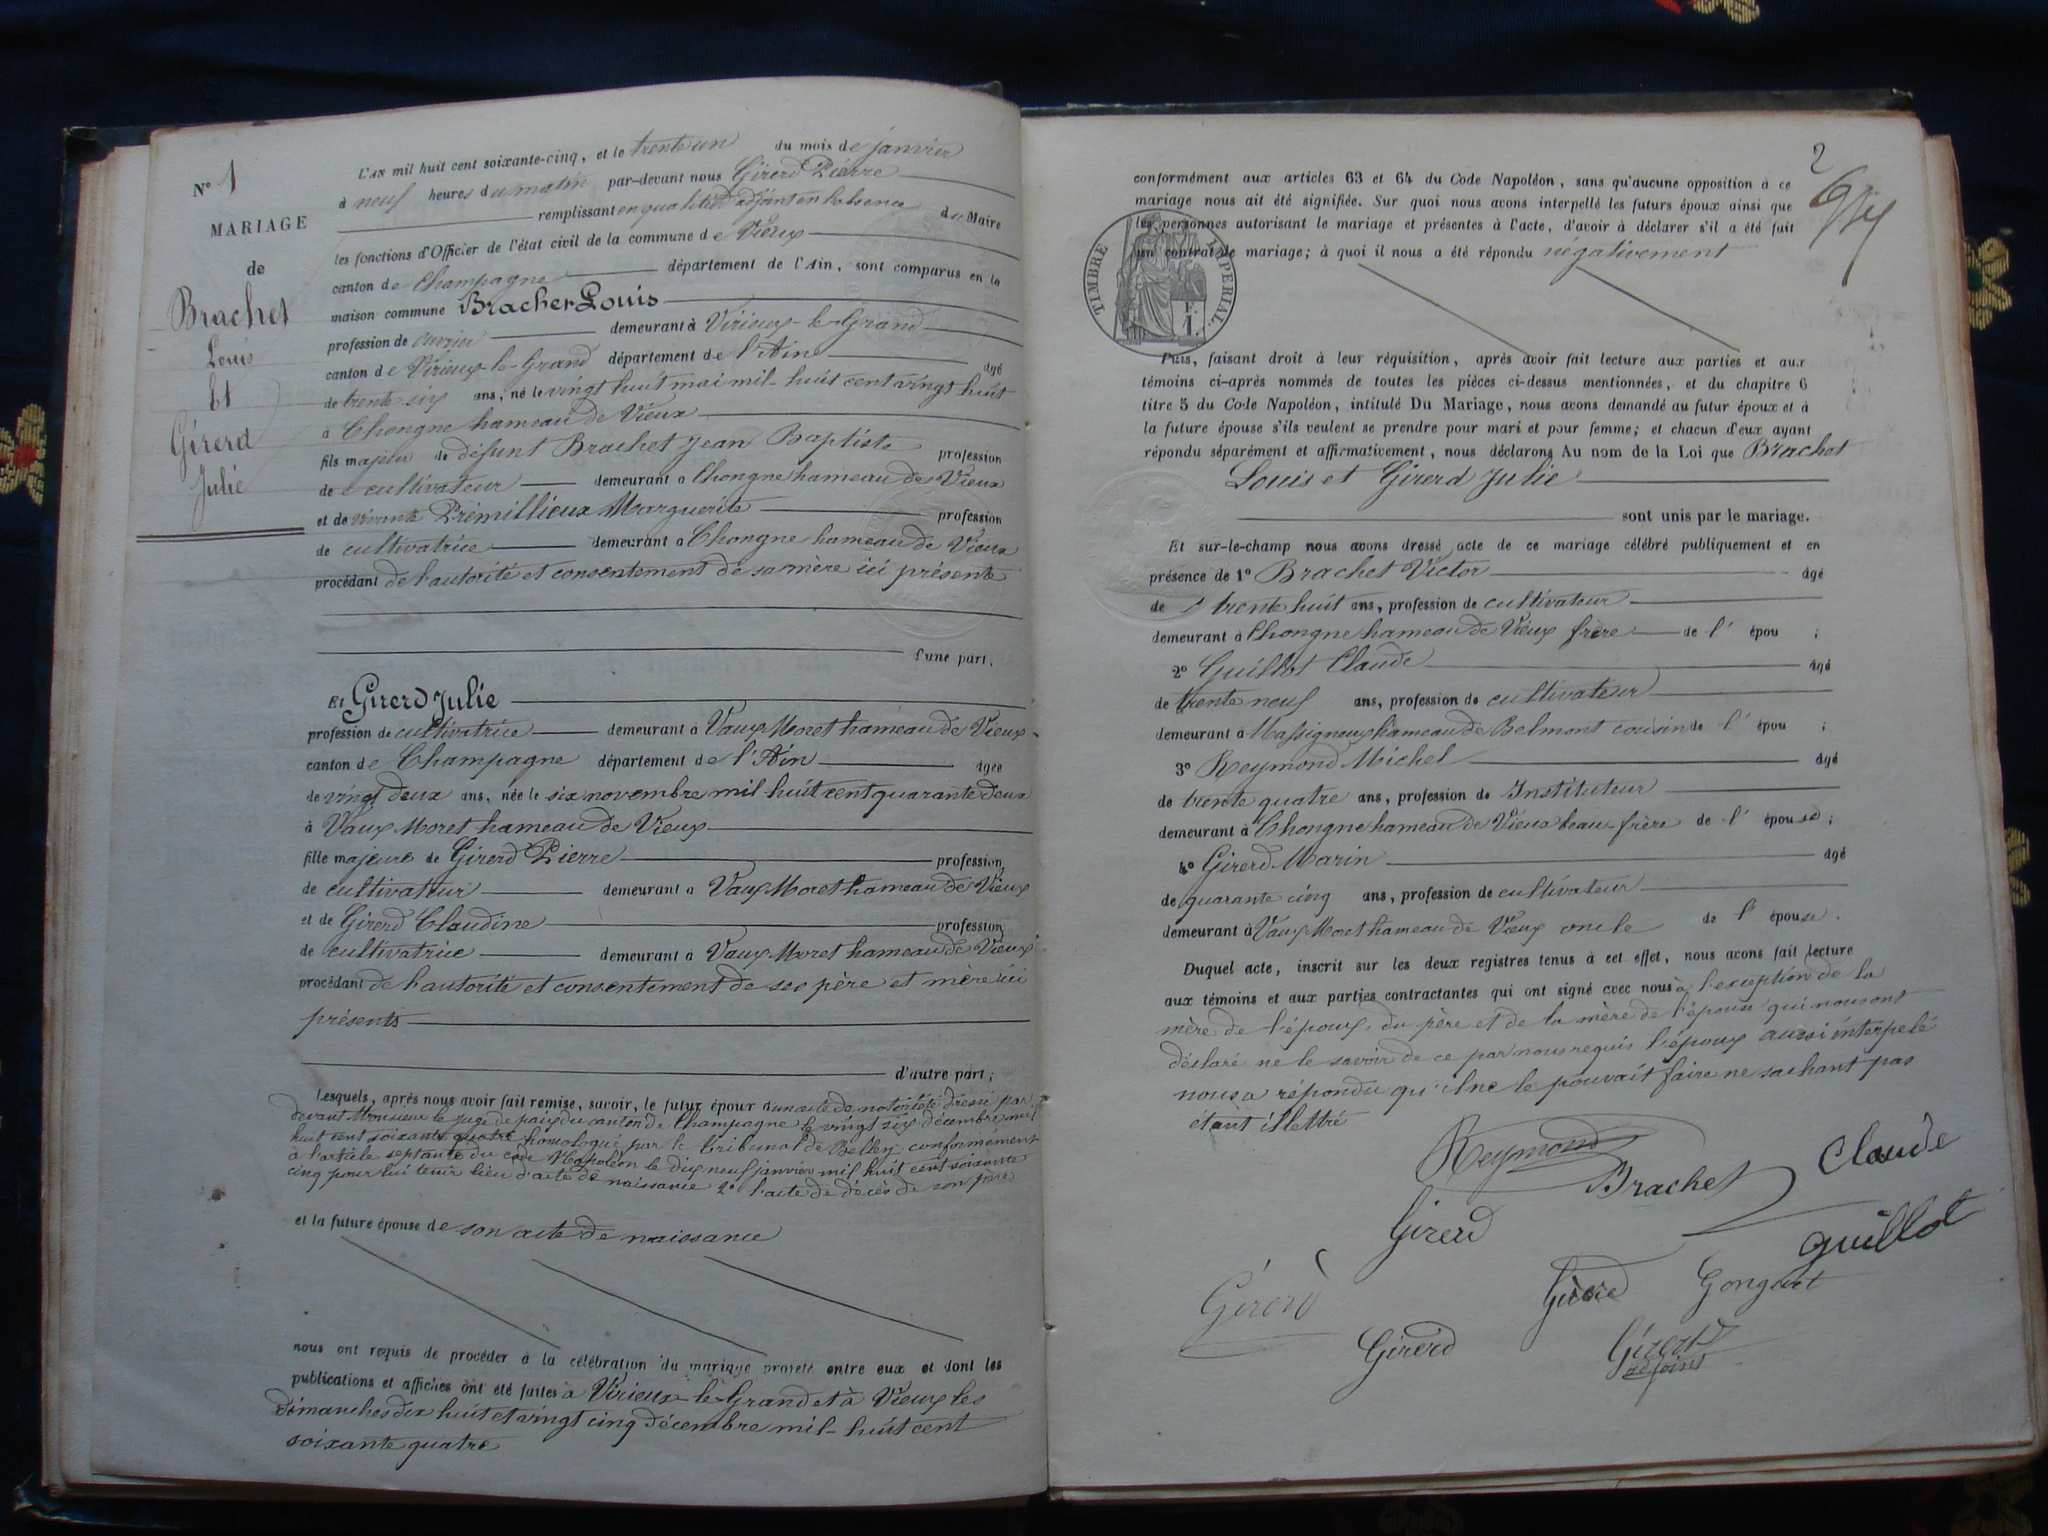 N° 1
MARIAGE
de
Brachet
Louis
Et
Girerd
Julie
L'an mil huit cent soixante-cinq, et le trente un du mois de janvier
à neuf heures du matin par-devant nous Girerd Pierre
remplissant en qualité d'adjoint en l'absence du Maire
les fonctions d'Officier de l'état civil de la commune de Vieux
canton de Champagne département de l'Ain, sont comparus en la
maison commune Brachet Louis
profession de ouvrier demeurant à Virieux-le-Grand
canton de Virieux-le-Grand département de l'Ain âgé
de trente six ans, né le vingt huit mai mil-huit cent vingt huit
à Chongne hameau de Vieux
fils majeur de défunt Brachet Jean Baptiste profession
de cultivateur demeurant à Chongne hameau de Vieux
et de vivante Prémillieux Marguerite profession
de cultivatrice demeurant à Chongne hameau de Vieux
procédant de l'autorité et consentement de sa mère ici présente
d'une part,
Et Girerd Julie
profession de cultivatrice demeurant à Vaux Moret hameau de Vieux
canton de Champagne département de l'Ain âgée
de vingt deux ans, née le six novembre mil huit cent quarante deux
à Vaux Moret hameau de Vieux
fille majeure de Girerd Pierre profession
de cultivateur demeurant à Vaux Moret hameau de Vieux
et de Girerd Claudine profession
de cultivatrice demeurant à Vaux Moret hameau de Vieux
procédant de l'autorité et consentement de ses père et mère ici
présents
d'autre part;
Lesquels, après nous avoir fait remise, savoir, le futur époux d'un acte de notoriété dressé par
devant Monsieur le juge de paix du canton de Champagne le vingt six décembre mil
huit cent soixante quatre homologué par le tribunal de Belley conformément
à l'article septante du code Napoléon le dix neuf janvier mil huit cent soixante
cinq pour lui tenir lieu d'acte de naissance 2° l'acte de décès de son père
et la future épouse de son acte de naissance
nous ont requis de procéder à la célébration du mariage projeté entre eux et dont les
publications et affiches ont été faites à Virieux-le-Grand et à Vieux les
dimanches dix huit et vingt cinq décembre mil-huit cent
soixante quatre
2
conformément aux articles 63 et 64 du Code Napoléon, sans qu'aucune opposition à ce
mariage nous ait été signifiée. Sur quoi nous avons interpellé les futurs époux ainsi que
les personnes autorisant le mariage et présentes à l'acte, d'avoir à déclarer s'il a été fait
un contrat de mariage; à quoi il nous a été répondu négativement
TIMBRE IMPERIAL.
F.
1.
Puis, faisant droit à leur réquisition, après avoir fait lecture aux parties et aux
témoins ci-après nommés de toutes les pièces ci-dessus mentionnées, et du chapitre 6
titre 5 du Code Napoléon, intitulé Du Mariage, nous avons demandé au futur époux et à
la future épouse s'ils veulent se prendre pour mari et pour femme; et chacun d'eux ayant
répondu séparément et affirmativement, nous déclarons Au nom de la Loi que Brachet
Louis et Girerd Julie
sont unis par le mariage.
Et sur-le-champ nous avons dressé acte de ce mariage célébré publiquement et en
présence de 1° Brachet Victor âgé
de trente huit ans, profession de cultivateur
demeurant à Chongne hameau de Vieux frère de l' épou ;
2° Guillot Claude âgé
de trente neuf ans, profession de cultivateur
demeurant à Massignoux hameau de Belmont cousin de l' épou ;
3° Reymond Michel âgé
de trente quatre ans, profession de Instituteur
demeurant à Chongne hameau de Vieux beau frère de l' épouse ;
4° Girerd Marin âgé
de quarante cinq ans, profession de cultivateur
demeurant à Vaux Moret hameau de Vieux oncle de l' épouse.
Duquel acte, inscrit sur les deux registres tenus à cet effet, nous avons fait lecture
aux témoins et aux parties contractantes qui ont signé avec nous à l'exception de la
mère de l'époux, du père et de la mère de l'épouse qui nous ont
déclaré ne le savoir de ce par nous requis l'époux aussi interpelé
nous a répondu qu'il ne le pouvait faire ne sachant pas
étant illettré
Reymond
Brachet
Claude
Girerd
Guillot
Girerd
Gongut
Girerd
Girerd
adjoint